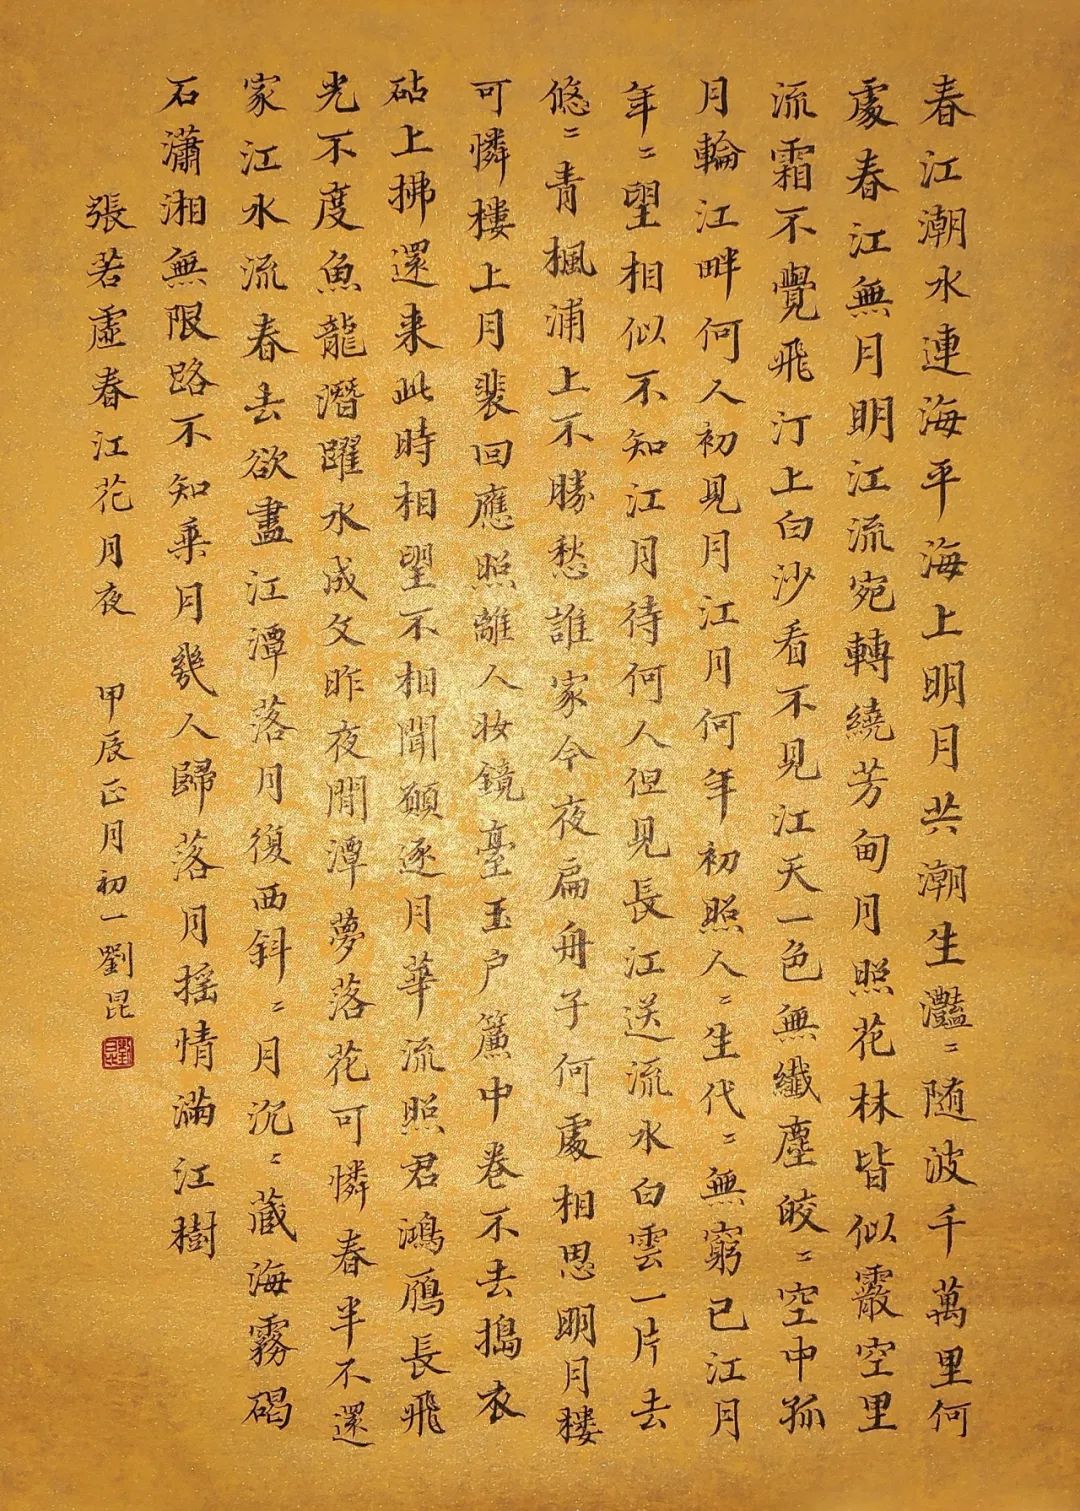 春江潮水連海平海上明月共潮生灩〻随波千萬里何
處春江無月明江流宛轉繞芳甸月照花林皆似霰空里
流霜不覺飛汀上白沙看不見江天一色無纖塵皎〻空中孤
月輪江畔何人初見月江月何年初照人〻生代〻無窮已江月
年〻望相似不知江月待何人但見長江送流水白雲一片去
悠〻青楓浦上不勝愁誰家今夜扁舟子何處相思明月樓
可憐樓上月裴回應照離人妝鏡臺玉户簾中卷不去搗衣
砧上拂還来此時相望不相聞願逐月華流照君鴻鴈長飛
光不度魚龍潛躍水成文昨夜閒潭夢落花可憐春半不還
家江水流春去欲盡江潭落月復西斜〻月沉〻藏海霧碣
石瀟湘無限路不知乘月幾人歸落月摇情滿江樹
張若虛春江花月夜 甲辰正月初一劉昆
劉昆